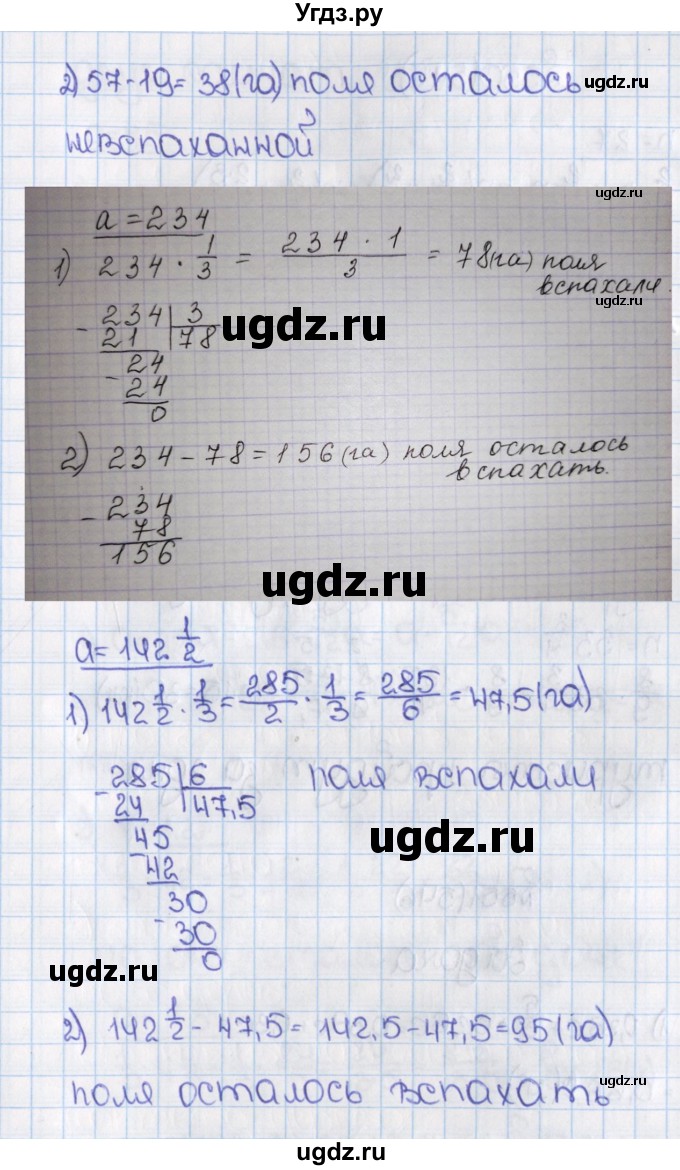 Угдз.ру
2) 57-19= 38(га) поля осталось
невспаханной
угдз.ru
a = 234
1) 234 · 1/3 = 234 · 1 / 3 = 78(га) поля
вспахали.
- 234 | 3
21 | 78
- 24
24
0
ugdz.ru
2) 234 - 78 = 156 (га) поля осталось
вспахать.
- 234
78
156
ugdz.ru
ugdz.ru
a= 142 1/2
1) 142 1/2 · 1/3 = 285/2 · 1/3 = 285/6 = 47,5(га)
- 285 | 6 поля вспахали
24 | 47,5
- 45
42
- 30
30
0
ugdz.ru
ugdz.ru
2) 142 1/2 - 47,5= 142,5-47,5=95(га)
поля осталось вспахать
ugdz.ru
ugdz.ru